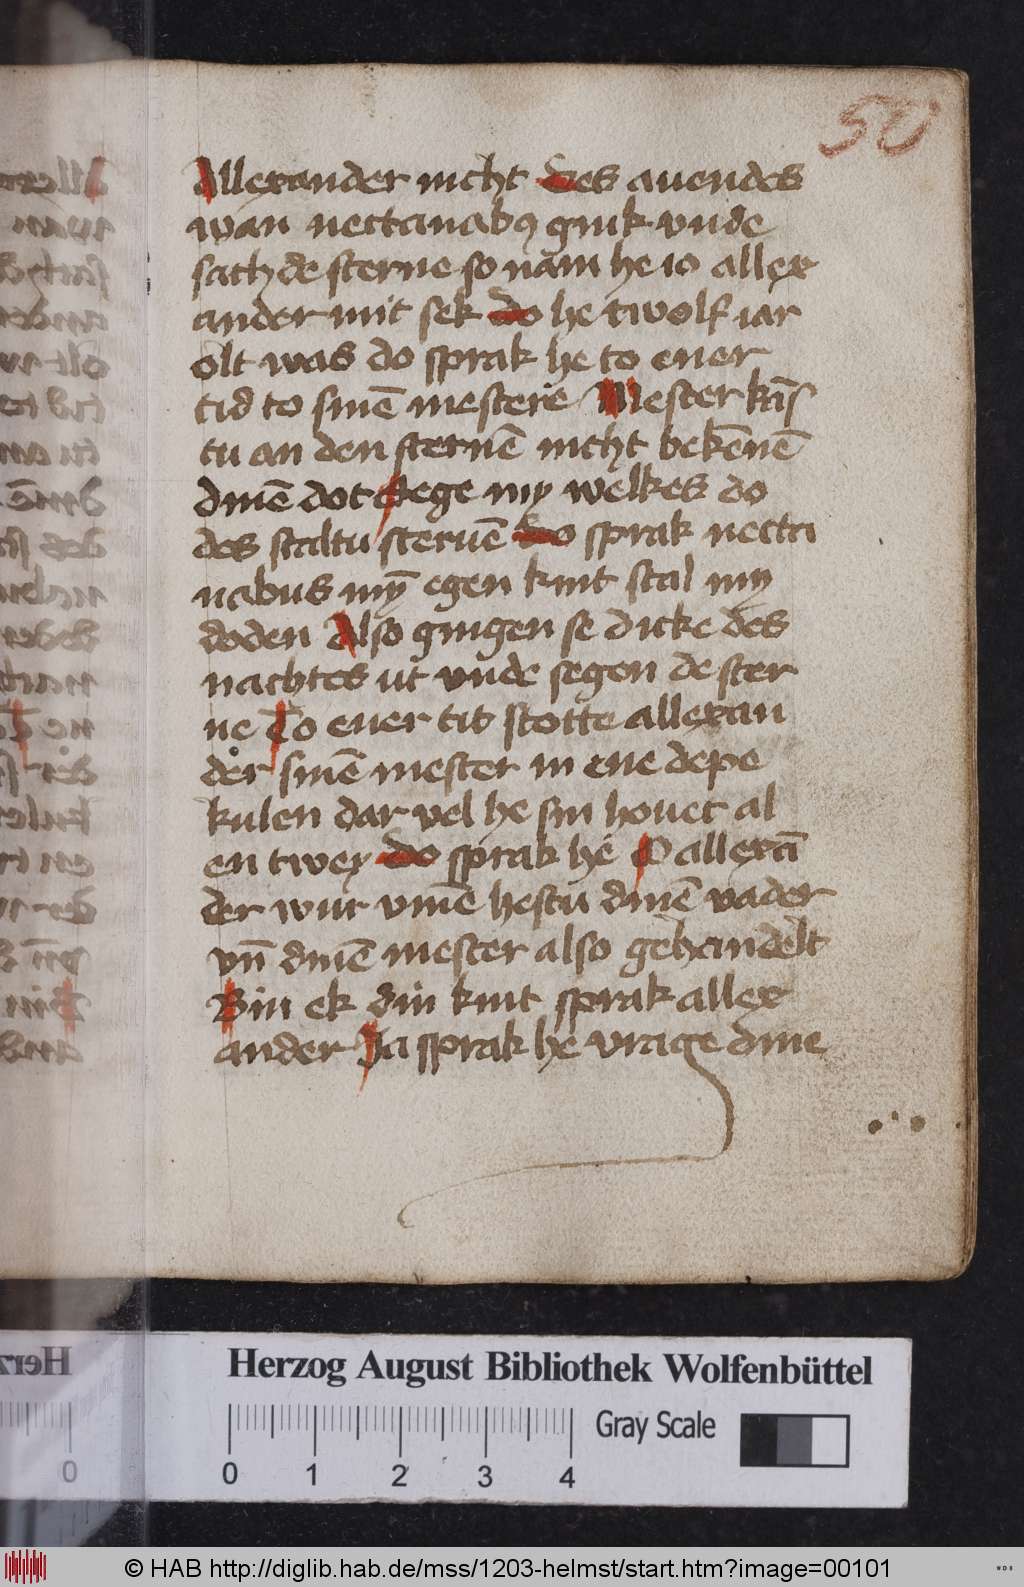 50
Allexander nicht des auendes
wan nectanabꝯ gink vnde
sach de sterne so nam he io allex
ander mit sek do he twolf iar
olt was do sprak he to ener
tid to sinē mestere Mester kāſ
tu an den sternē nicht bekēnē
dinē dot Sege my welkes do
des staltu steruē do sprak necta
nabus mȳ egen kint stal my
doden Also gingen se dicke des
nachtes ut vnde segen de ster
ne To ener tit stotte allexan
der sinē mester in ene depe
kulen dar vel he sin houet al
en twey do sprak he O allexā
der wur vmē hestu dinē vader
vn̄ dinē mester also gehandelt
Bin ek din kint sprak allex
ander Ja sprak he vrage dine
Herzog August Bibliothek Wolfenbüttel
Gray Scale
0 1 2 3 4
© HAB http://diglib.hab.de/mss/1203-helmst/start.htm?image=00101